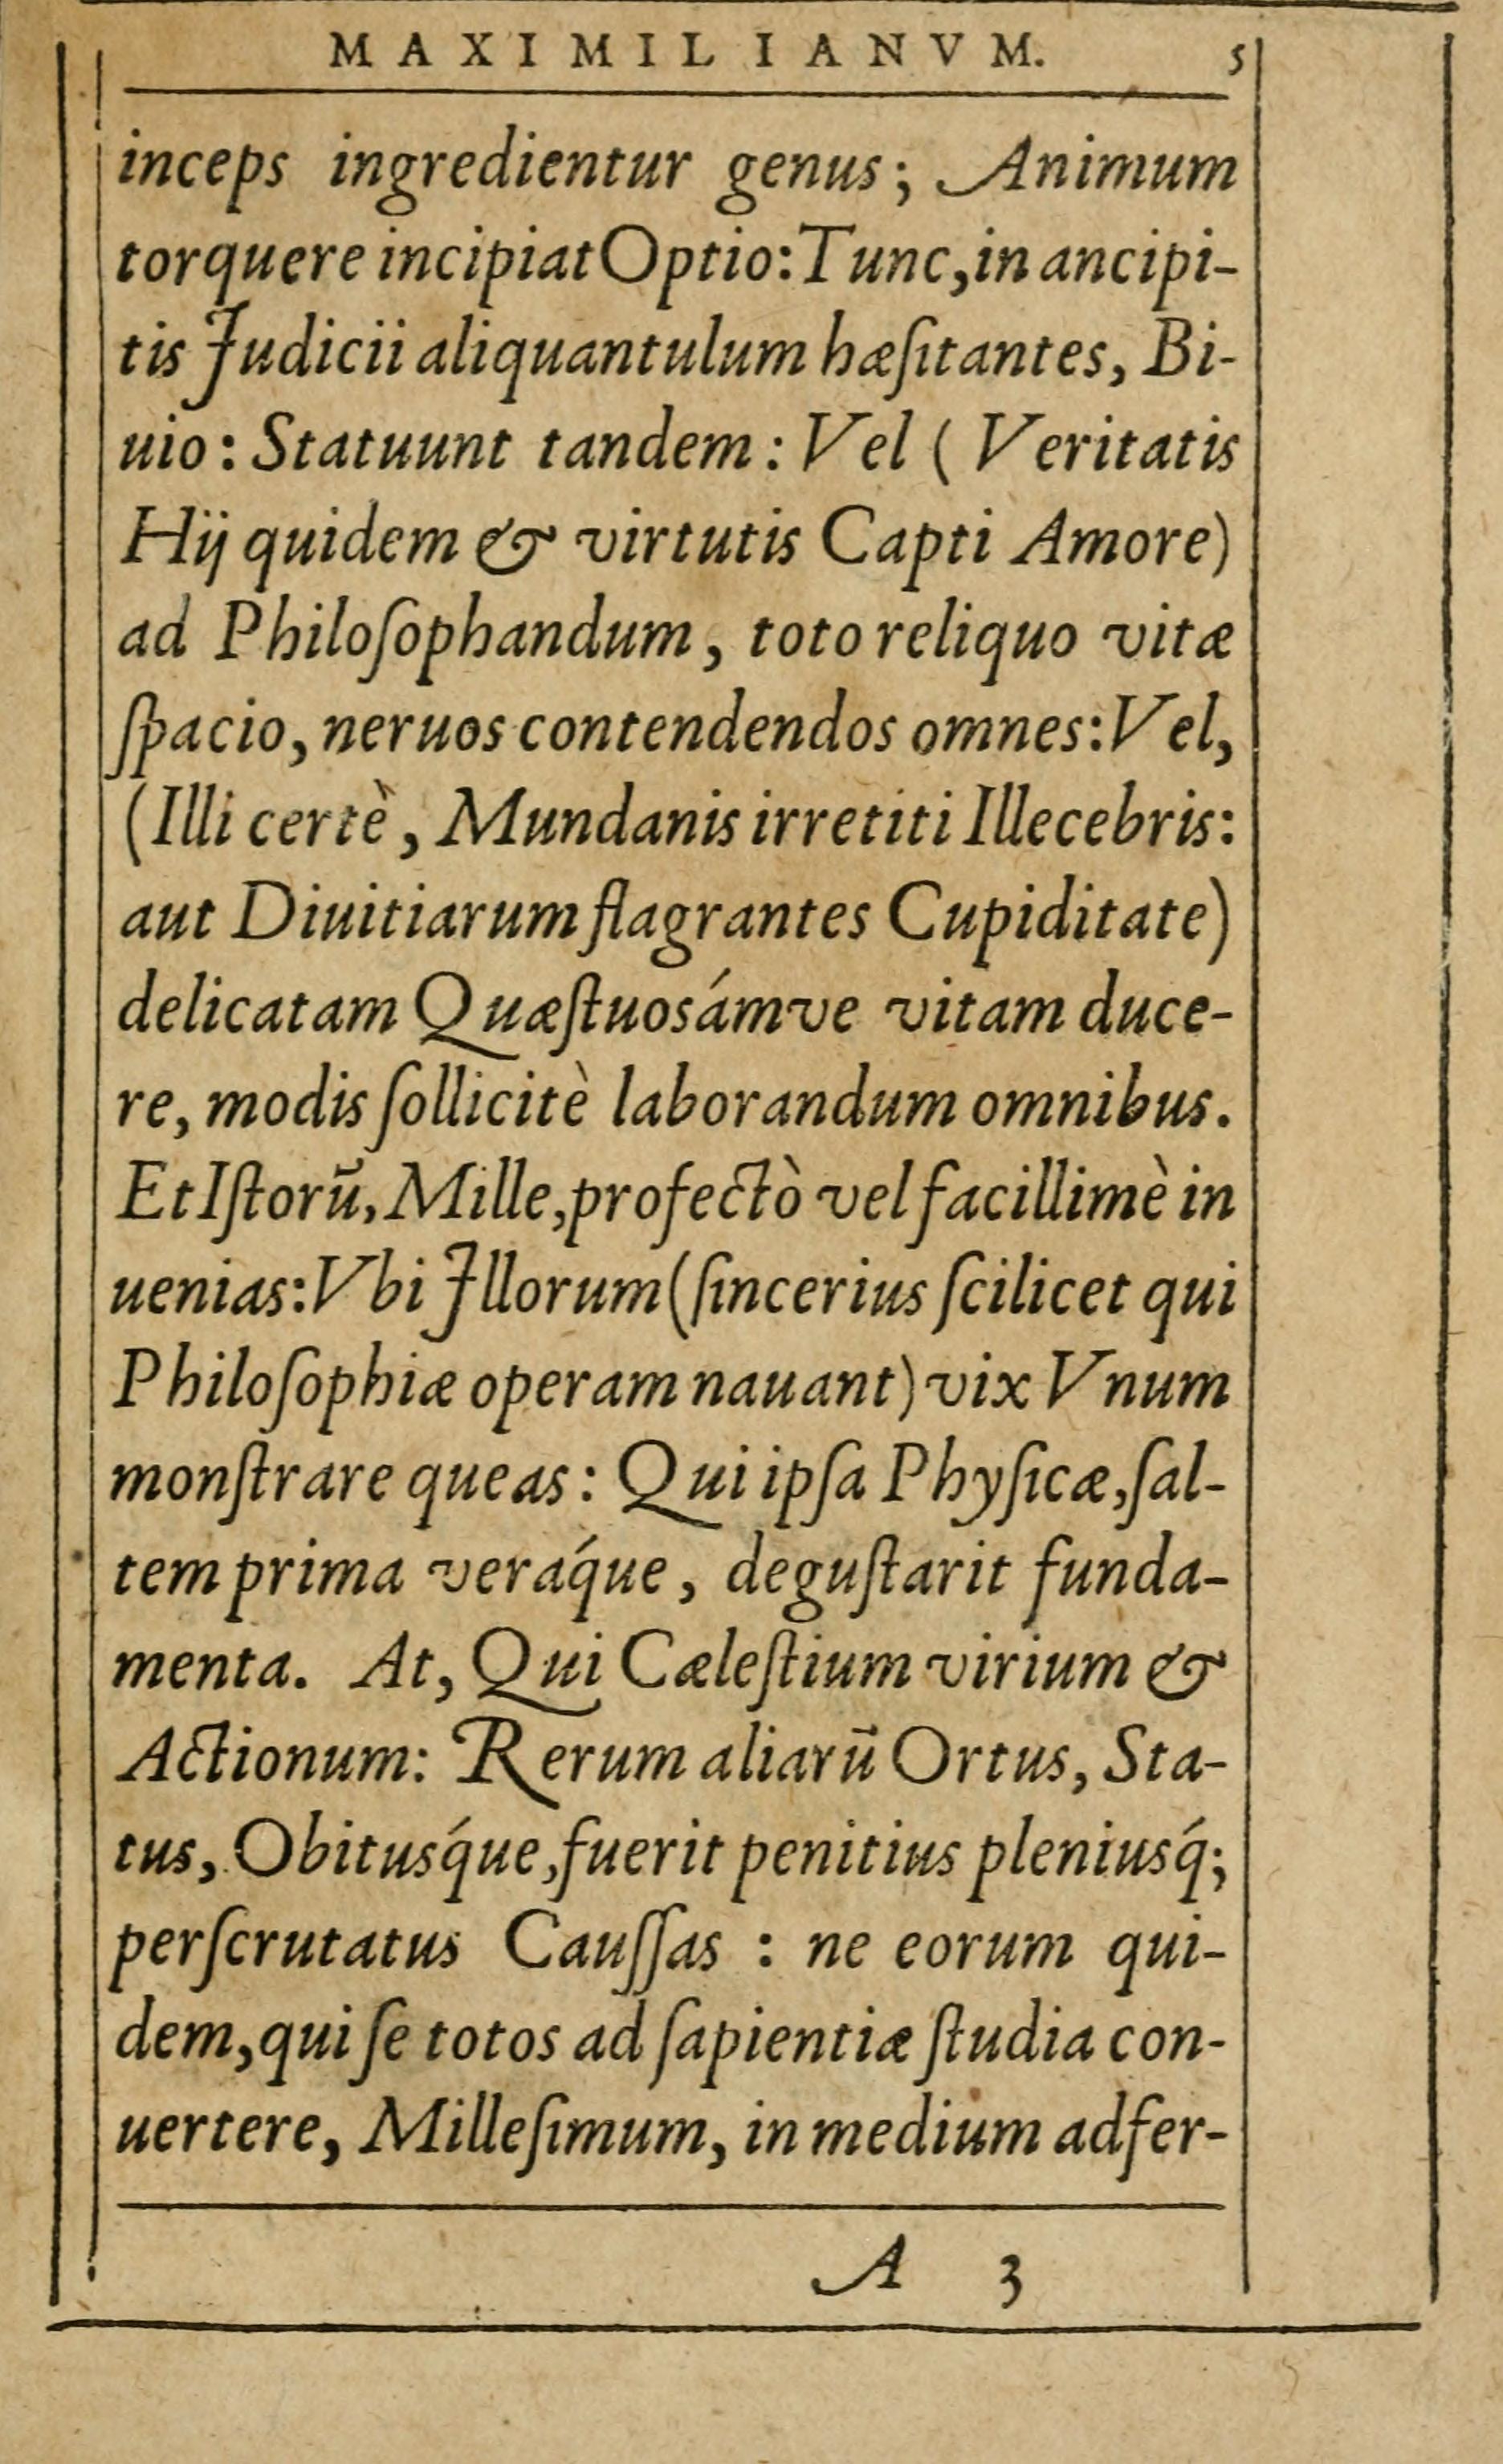 MAXIMILIANVM. 5
inceps ingredientur genus; Animum
torquere incipiat Optio: Tunc, in ancipi-
tis Judicii aliquantulum hæſitantes, Bi-
uio: Statuunt tandem: Vel (Veritatis
Hij quidem & virtutis Capti Amore)
ad Philoſophandum, toto reliquo vitæ
ſpacio, neruos contendendos omnes: Vel,
(Illi certè, Mundanis irretiti Illecebris:
aut Diuitiarum flagrantes Cupiditate)
delicatam Quæſtuosámve vitam duce-
re, modis ſollicitè laborandum omnibus.
Et Iſtorū, Mille, profectò vel facillimè in
uenias: Vbi Jllorum (ſincerius ſcilicet qui
Philoſophiæ operam nauant) vix Vnum
monſtrare queas: Qui ipſa Phyſicæ, ſal-
tem prima veráque, deguſtarit funda-
menta. At, Qui Cæleſtium virium &
Actionum: Rerum aliarū Ortus, Sta-
tus, Obitusq́ue, fuerit penitius pleniusq́;
perſcrutatus Cauſſas : ne eorum qui-
dem, qui ſe totos ad ſapientiæ ſtudia con-
uertere, Milleſimum, in medium adfer-
A 3